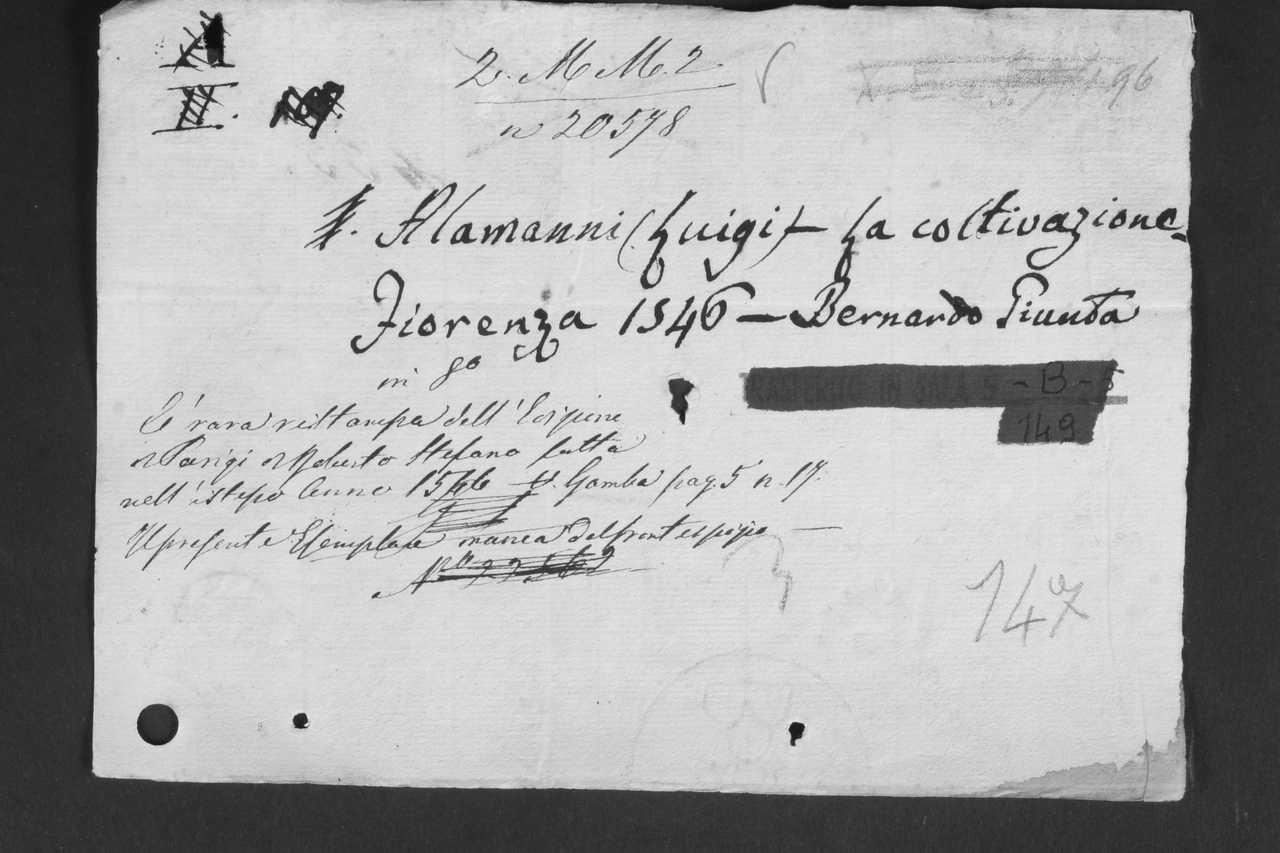 2. M M. 2.
n 20578
96
Alamanni (Luigi) – La coltivazione
Fiorenza 1546 – Bernardo Giunta
in 8º
TRASFERITO IN SALA 5 - B - 5
149
E' rara ristampa dell'Edizione
di Parigi di Roberto Stefano fatta
nell'istesso Anno 1546 – V. Gamba pag. 5 n. 17.
Il presente Esemplare manca del frontespizio —
147